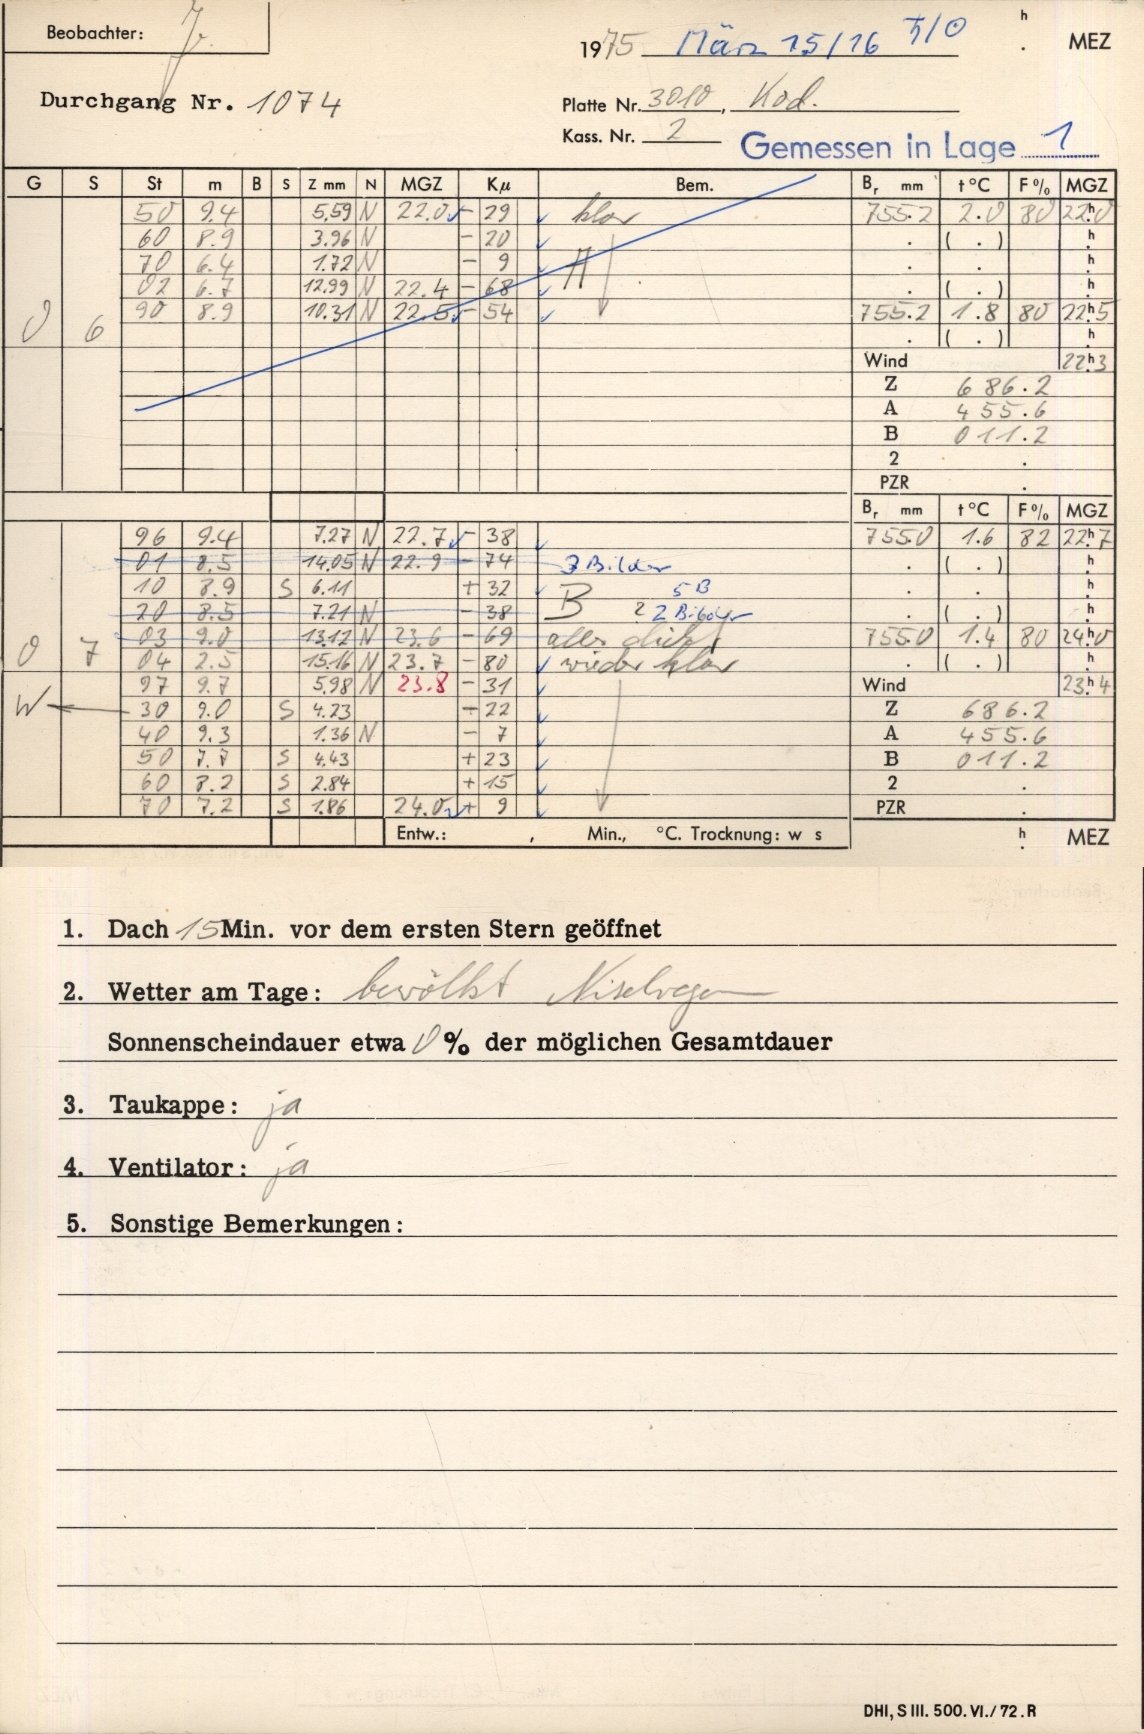 Beobachter: J.
1975 März 15/16 ♄/☉ h . MEZ
Durchgang Nr. 1074
Platte Nr. 3010, Kod.
Kass. Nr. 2
Gemessen in Lage 1
G S St m B S Z mm N MGZ Kμ Bem. Br mm t °C F % MGZ
50 9.4 5.59 N 22.0 - 29 klar 755.2 2.0 80 22h0
60 8.9 3.96 N - 20 . ( . ) h
70 6.4 1.72 N - 9 A . h
02 6.7 12.99 N 22.4 - 68 . ( . ) h
0 6 90 8.9 10.31 N 22.5 - 54 755.2 1.8 80 22h5
. ( . ) h
Wind 22h3
Z 686.2
A 455.6
B 011.2
2 .
PZR .
Br mm t °C F % MGZ
96 9.4 7.27 N 22.7 - 38 755.0 1.6 82 22h7
01 8.5 14.05 N 22.9 - 74 3 Bilder . ( . ) h
10 8.9 S 6.11 + 32 B 5 B . h
20 8.5 7.21 N - 38 2 2 Bilder . ( . ) h
0 7 03 9.0 13.12 N 23.6 - 69 alles dicht 755.0 1.4 80 24h0
04 2.5 15.16 N 23.7 - 80 wieder klar . ( . ) h
97 9.7 5.98 N 23.8 - 31 Wind 23h4
W 30 9.0 S 4.23 + 22 Z 686.2
40 9.3 1.36 N - 7 A 455.6
50 7.7 S 4.43 + 23 B 011.2
60 8.2 S 2.84 + 15 2 .
70 7.2 S 1.86 24.0 + 9 PZR .
Entw.: , Min., °C. Trocknung: w s h . MEZ
1. Dach 15 Min. vor dem ersten Stern geöffnet
2. Wetter am Tage: bewölkt Nieselregen
Sonnenscheindauer etwa 0 % der möglichen Gesamtdauer
3. Taukappe: ja
4. Ventilator: ja
5. Sonstige Bemerkungen:
DHI, S III. 500. VI./72. R